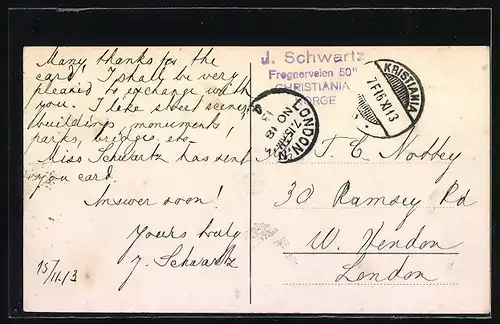 Many thanks for the
card! I shall be very
pleased to exchange with
you. I like street scenes,
buildings, monuments,
parks, bridges, etc.
Miss Schwartz has sent
you card.
Answer soon!
Yours truly
J. Schwartz
15/11.13
J. Schwartz
Frognerveien 50"
CHRISTIANIA
NORGE
KRISTIANIA
LONDON. N.
7.15 AM
NO 18
13
T. C. Nobbey
30 Ramsey Rd
W. Hendon
London